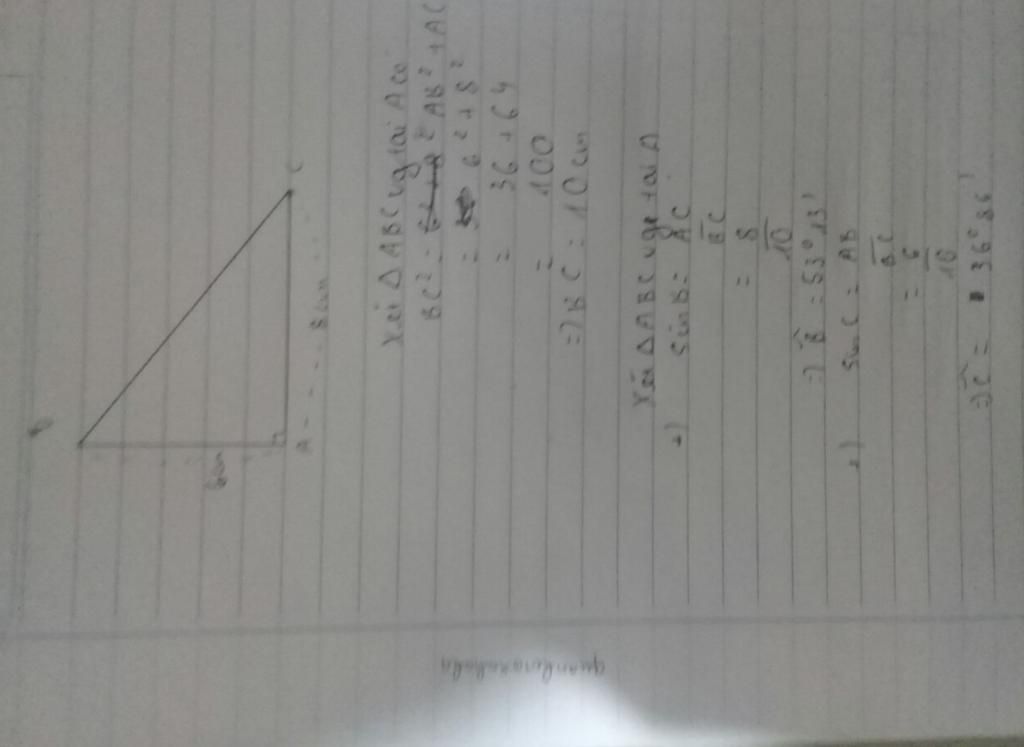 B
6cm
A - - - - 8cm
C
Xét Δ ABC vg tại A có
BC² = AB² + AC
= 6² + 8²
= 36 + 64
= 100
=> BC = 10cm
Xét Δ ABC vg tại A
+) sin B = AC/BC
= 8/10
=> B̂ = 53°13'
+) sin C = AB/BC
= 6/10
=> Ĉ = 36°86'